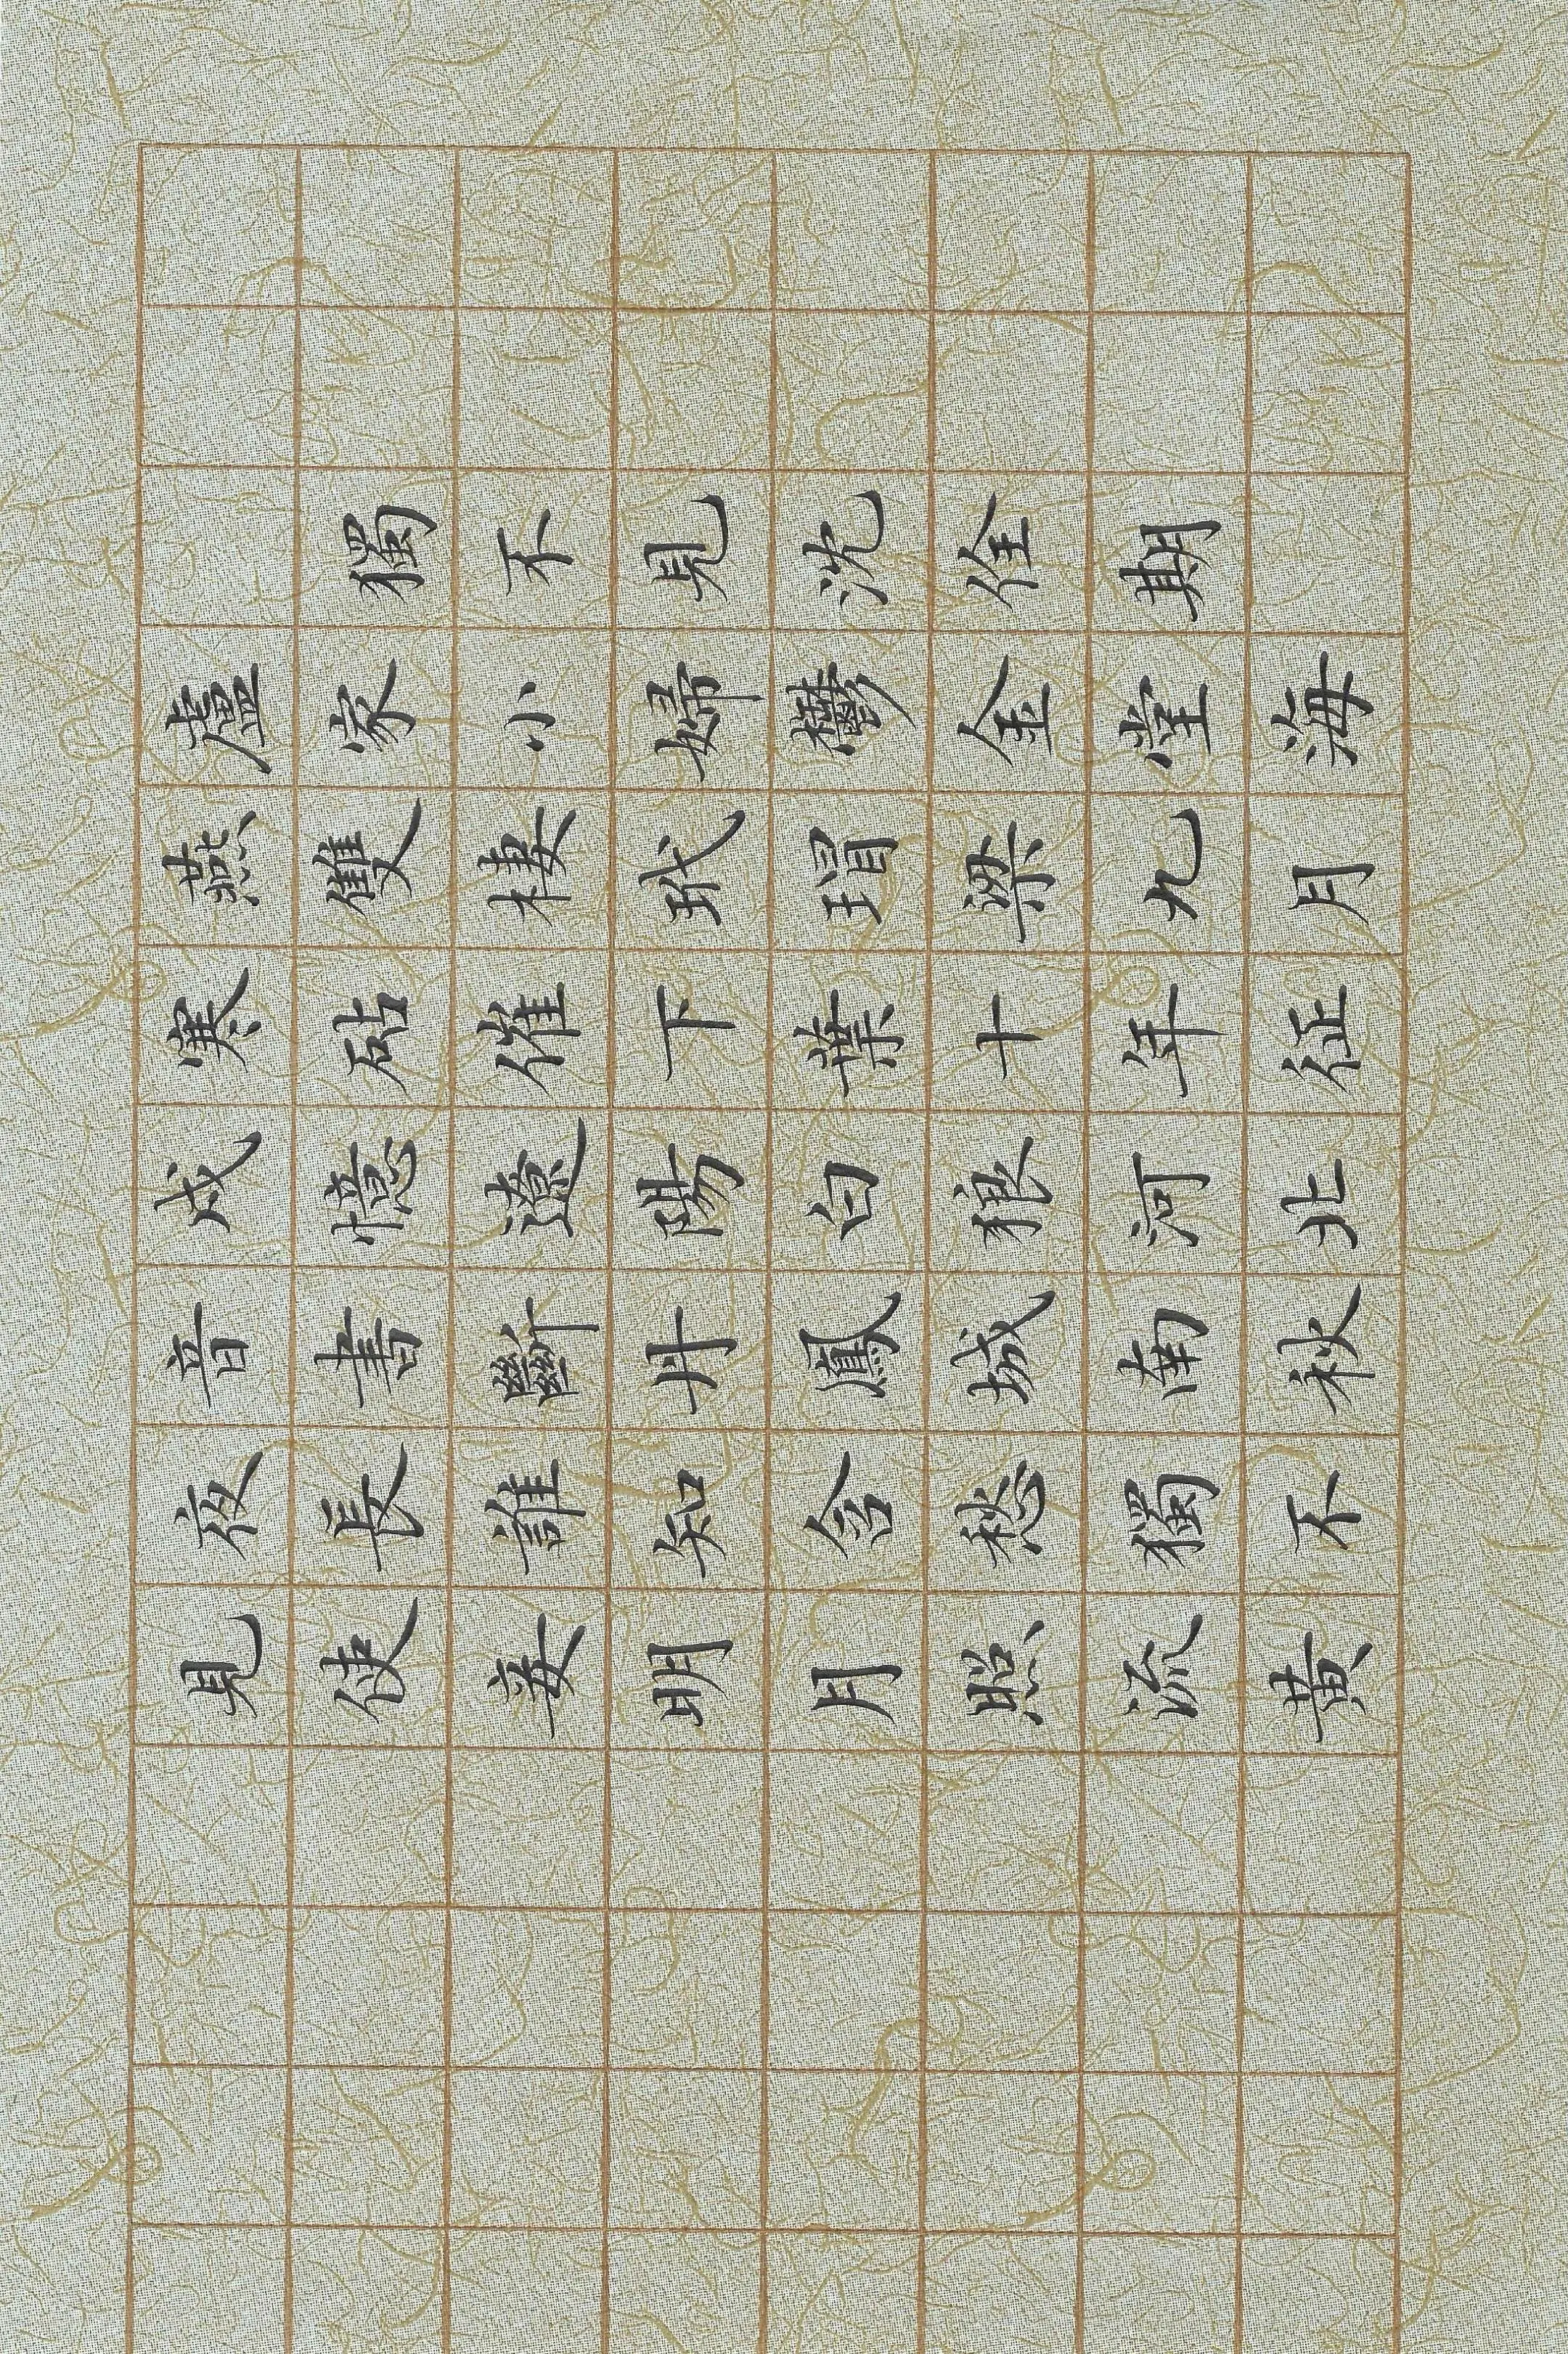 獨不見沈佺期
盧家小婦鬱金堂海
燕雙棲玳瑁梁九月
寒砧催下葉十年征
戍憶遼陽白狼河北
音書斷丹鳳城南秋
夜長誰知含愁獨不
見使妾明月照流黃